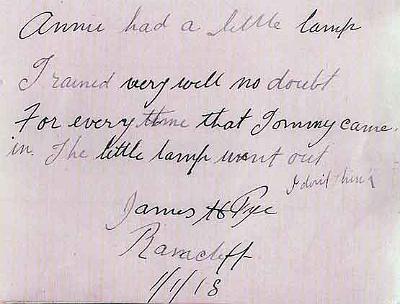 Annie had a little lamp
Trained very well no doubt
For every time that Tommy came
in. The little lamp went out
I don't think
James H Pye
Ravacliff
1/1/18